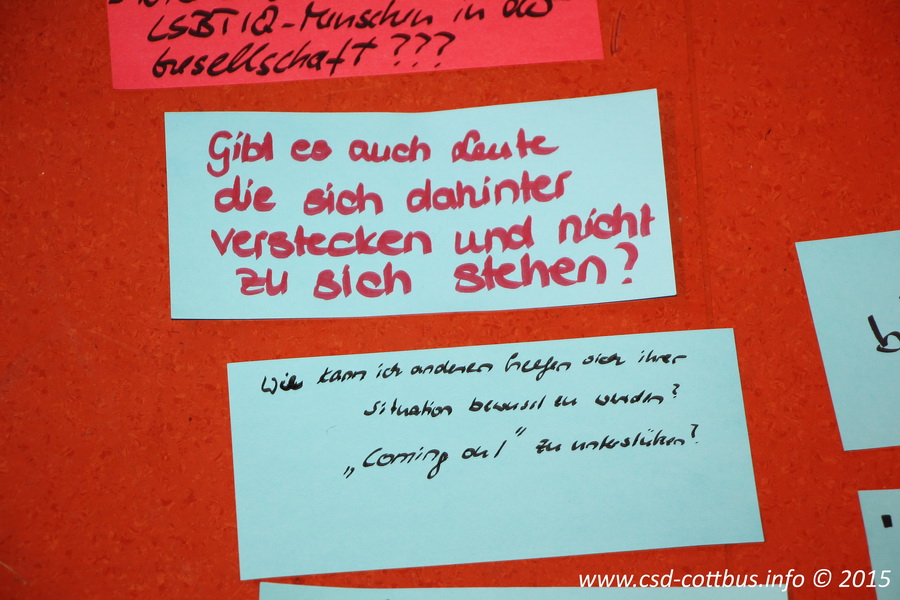 LSBTIQ-Menschen in der
Gesellschaft???
Gibt es auch Leute
die sich dahinter
verstecken und nicht
zu sich stehen?
Wie kann ich anderen helfen sich ihrer
Situation bewusst zu werden?
„Coming out" zu unterstützen?
www.csd-cottbus.info © 2015